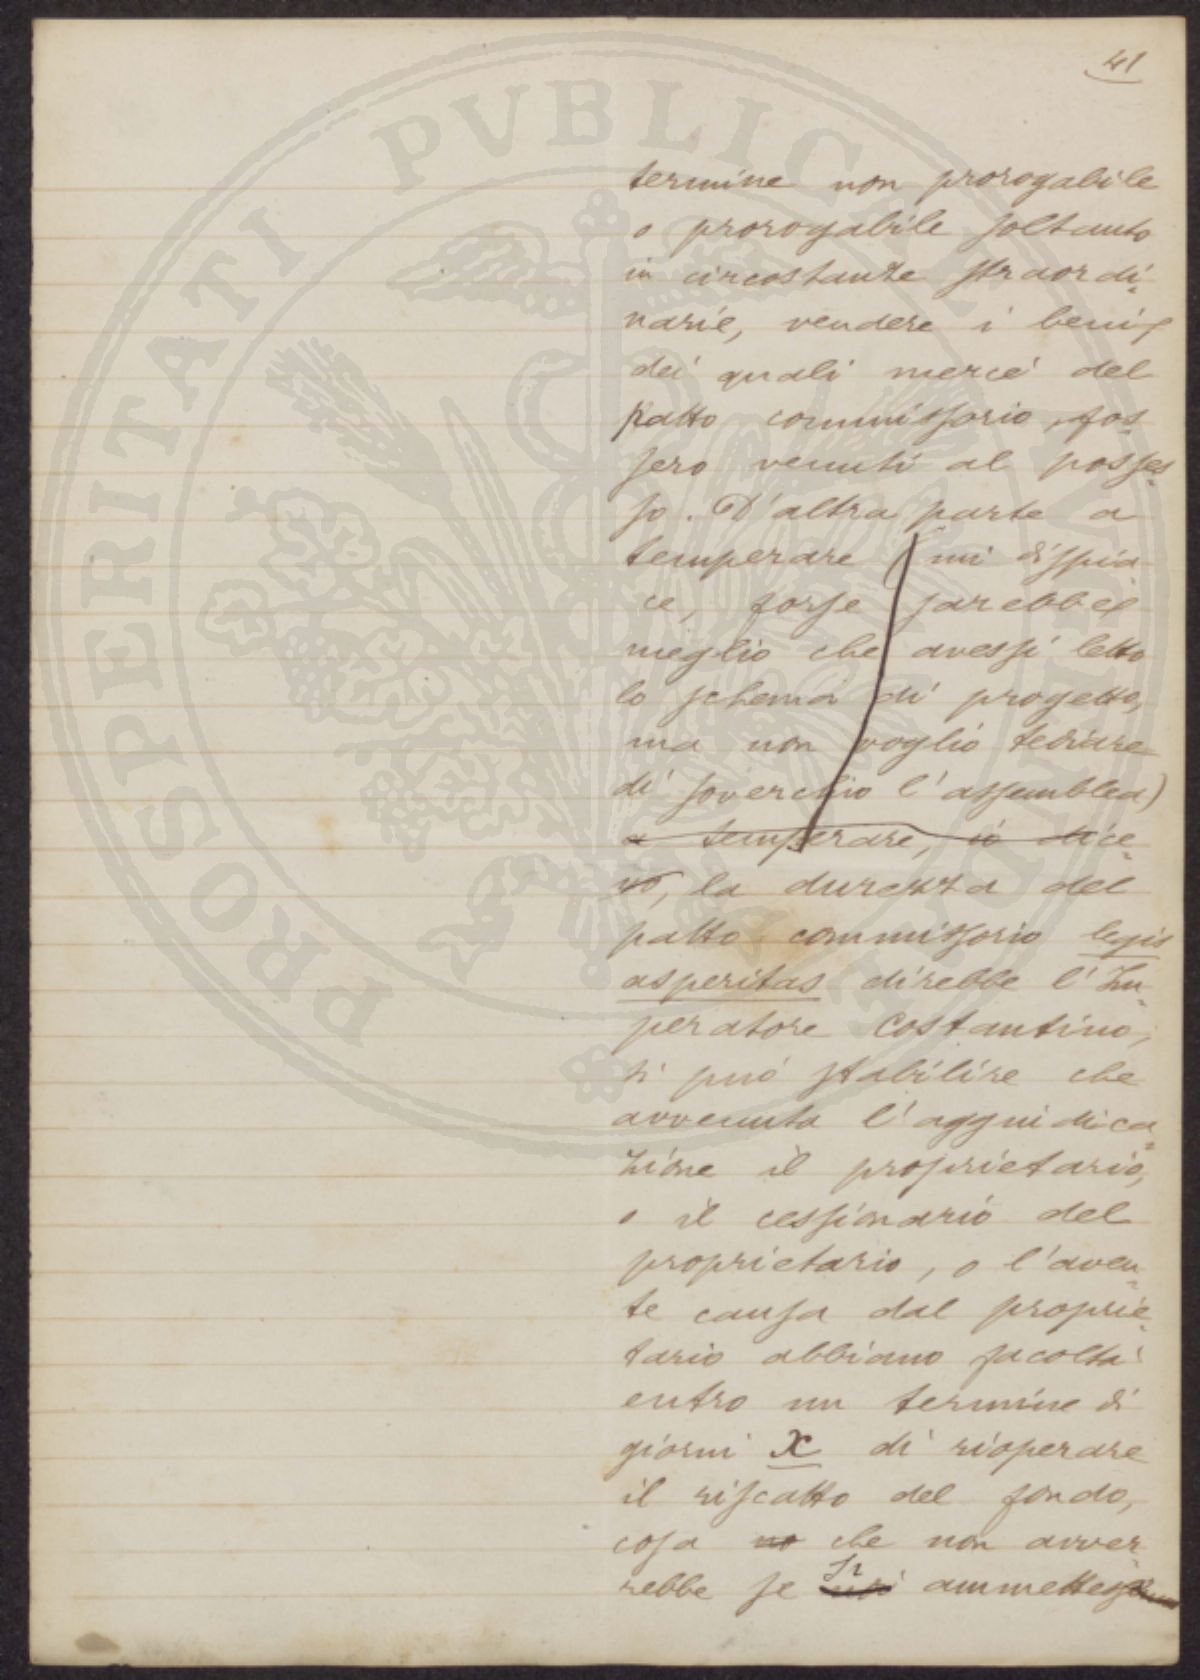 41
termine non prorogabile
o prorogabile soltanto
in circostanze straordi=
narie, vendere i beni
dei quali mercé del
patto commissorio, fos=
sero venuti al posses=
so. D'altra parte a
temperare (mi dispia=
ce, forse sarebbe
meglio che avessi letto
lo schema di progetto,
ma non voglio tediare
di soverchio l'assemblea)
a temperare, io dice=
vo, la durezza del
patto commissorio legis
asperitas direbbe l'Im=
peratore Costantino,
si può stabilire che
avvenuta l'aggiudica=
zione il proprietario,
o il cessionario del
proprietario, o l'aven=
te causa dal proprie=
tario abbiano facoltà
entro un termine di
giorni X di rioperare
il riscatto del fondo,
cosa no che non avver=
rebbe se si noi ammettes
PROSPERITATI PVBLICAE AVGENDAE